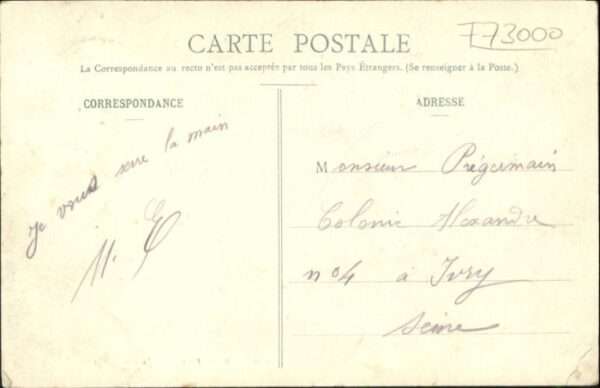 F73000
CARTE POSTALE
La Correspondance au recto n'est pas acceptée par tous les Pays Étrangers. (Se renseigner à la Poste.)
CORRESPONDANCE
Je vous serre la main
M. E
ADRESSE
Monsieur Prégermain
Colonie Alexandre
nº4 à Ivry
Seine